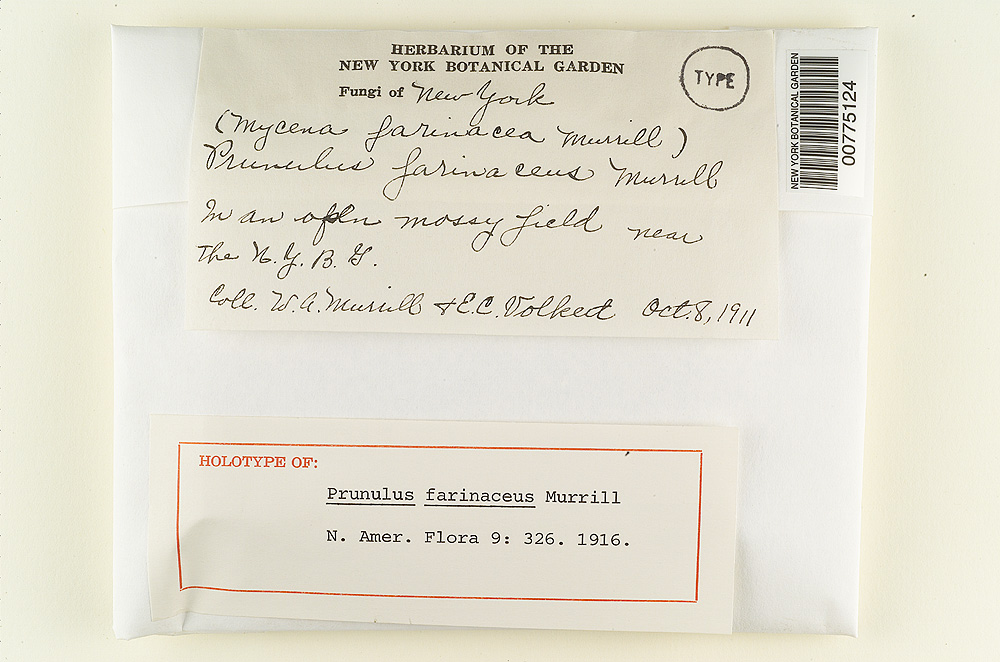 HERBARIUM OF THE
NEW YORK BOTANICAL GARDEN
TYPE
Fungi of New York
(Mycena farinacea Murrill)
Prunulus farinaceus Murrill
In an open mossy field near
the N.Y.B.G.
Coll. W.A. Murrill & E.C. Volkert Oct. 8, 1911
NEW YORK BOTANICAL GARDEN
00775124
HOLOTYPE OF:
Prunulus farinaceus Murrill
N. Amer. Flora 9: 326. 1916.